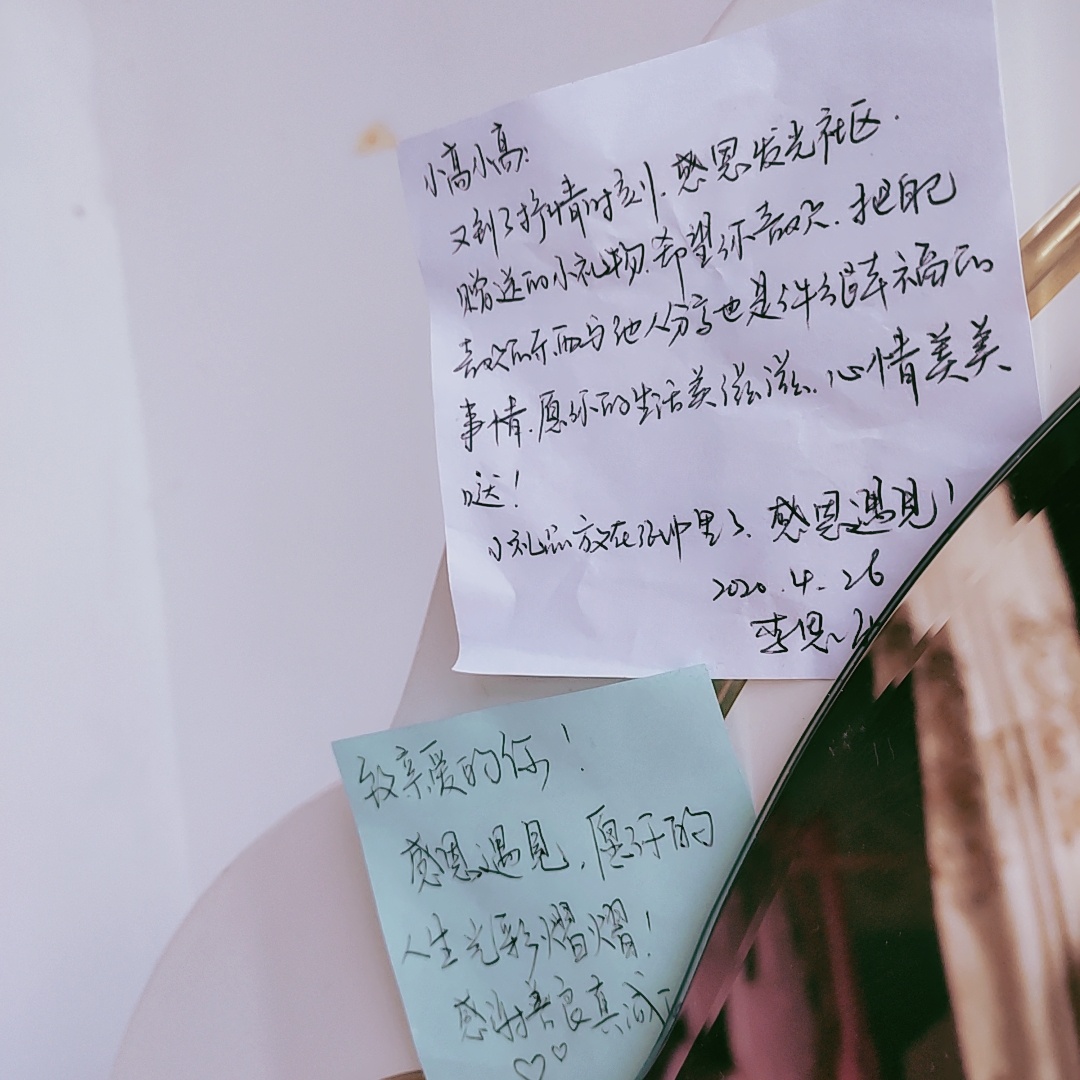 小高小高:
又到了抒情时刻.感恩发光社区.
赠送的小礼物.希望你喜欢.把自己
喜欢的东西与他人分享也是件很幸福的
事情.愿你的生活美滋滋.心情美美
哒!
小礼品放在袋中里了.感恩遇见!
2020.4.26
李
致亲爱的你!
感恩遇见,愿你的
人生光彩熠熠!
感谢善良真诚